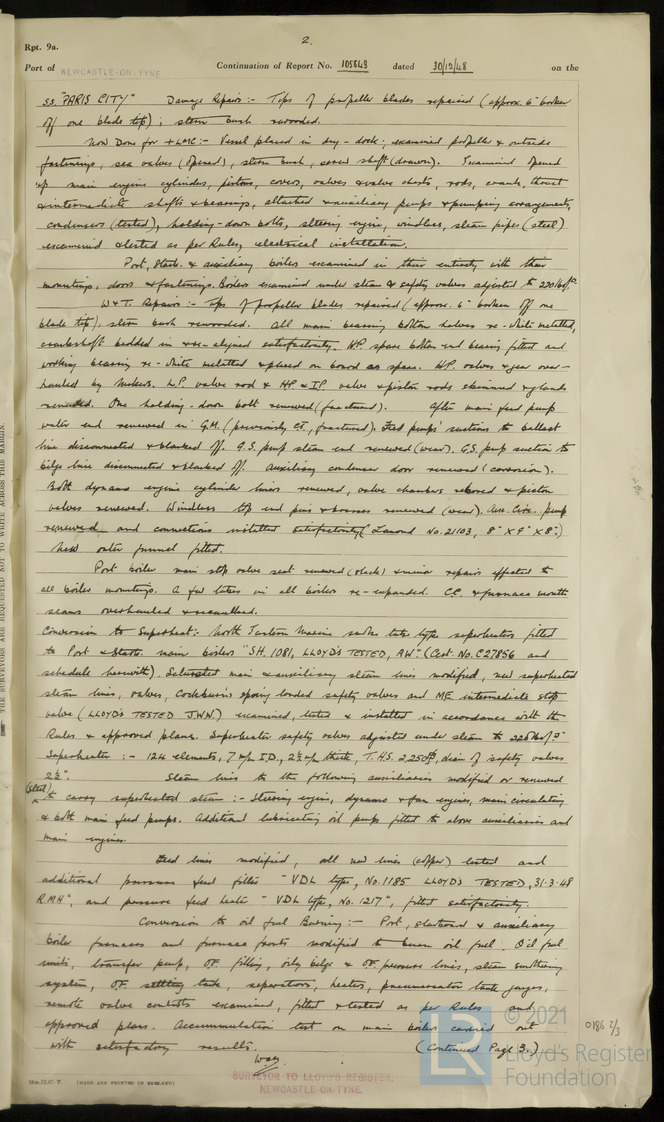 2.
Rpt. 9a.
Port of NEWCASTLE-ON-TYNE Continuation of Report No. 105643 dated 30/12/48 on the
S.S. "PARIS CITY" Damage Repairs:- Tips of propeller blades repaired (approx. 6" broken
off one blade tip); stern bush rewooded.
Now Done for +LMC:- Vessel placed in dry-dock; examined propeller & outside
fastenings, sea valves (opened), stern bush, screw shaft (drawn). Examined opened
up main engine cylinders, pistons, covers, valves & valve chests, rods, cranks, thrust
& intermediate shafts & bearings, attached & auxiliary pumps & pumping arrangements,
condensers (tested), holding-down bolts, steering engine, windlass, steam pipes (steel)
examined & tested as per Rules, electrical installation.
Port, Starb. & auxiliary boilers examined in their entirety with their
mountings, doors & fastenings. Boilers examined under steam & safety valves adjusted to 220
W & T. Repairs:- Tips of propeller blades repaired (approx. 6" broken off one
blade tip), stern bush rewooded. All main bearing bottom halves re-white metalled,
crankshaft bedded in & re-aligned satisfactorily. H.P. spare bottom end bearing fitted and
working bearing re-white metalled & placed on board as spare. H.P. valves & gear over-
hauled by Makers. L.P. valve rod & HP & I.P. valve & piston rods skimmed & glands
One holding-down bolt renewed (fractured). After main feed pump
water end renewed in G.M. (previously C.I., fractured). Feed pumps' suctions to ballast
line disconnected & blanked off. G.S. pump steam end renewed (wear). G.S. pump suction to
bilge line disconnected & blanked off. Auxiliary condenser door renewed (corrosion).
Both dynamo engine cylinder liners renewed, valve chambers rebored & piston
valves renewed. Windlass top end pins & brasses renewed (wear). Aux. Circ. pump
renewed and connections installed satisfactorily (Lamont No. 21103, 8" X 9" X 8".)
New outer funnel fitted.
Port boiler main stop valve seat renewed (slack) & minor repairs effected to
all boiler mountings. A few tubes in all boilers re-expanded. C.C. & furnace mouth
seams overhauled & recaulked.
Conversion to Superheat:- North Eastern Marine smoke tube type superheaters fitted
to Port & Starb. main boilers "SH. 1081, LLOYD'S TESTED, AW." (Cert. No. C27856 and
schedule herewith). Saturated main & auxiliary steam lines modified, new superheated
steam lines, valves, Cockburn's spring loaded safety valves and ME intermediate stop
valve (LLOYD'S TESTED J.W.W.) examined, tested & installed in accordance with the
Rules & approved plans. Superheater safety valves adjusted under steam to 225
Superheater:- 124 elements, 7 m/m I.D., 2½ m/m thick, T.H.S. 2,250, diam of safety valves
2½". Steam lines to the following auxiliaries modified or renewed
(Steel) to carry superheated steam:- Steering engine, dynamo & fan engines, main circulating
& both main feed pumps. Additional lubricating oil pumps fitted to above auxiliaries and
main engines.
Feed lines modified, all new lines (copper) tested and
additional pressure feed filter "VDL type, No. 1185 LLOYD'S TESTED, 31-3-48
RMH", and pressure feed heater "VDL type, No. 1217", fitted satisfactorily.
Conversion to oil fuel Burning:- Port, starboard & auxiliary
boiler furnaces and furnace fronts modified to burn oil fuel. Oil fuel
units, transfer pump, OF. filling, oily bilge & OF. pressure lines, steam smothering
system, OF settling tanks, separators, heaters, pneumercator tank gauges,
remote valve controls examined, fitted & tested as per Rules and
approved plans. Accumulation test on main boilers carried out
with satisfactory results. (Continued Page 3.)
SURVEYOR TO LLOYD'S REGISTER.
NEWCASTLE-ON-TYNE.
(MADE AND PRINTED IN ENGLAND)
THE SURVEYORS ARE REQUESTED NOT TO WRITE ACROSS THIS MARGIN.
0186 2/3
LR © 2021
Lloyd's Register
Foundation